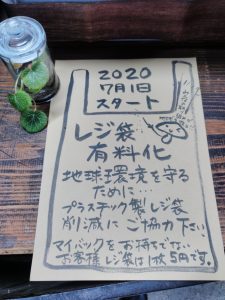 2020
7月1日
スタート
レジ袋
有料化
地球環境を守る
ために…
プラスチック製レジ袋
削減にご協力下さい
マイバックをお持ちでない
お客様レジ袋は1枚5円です。